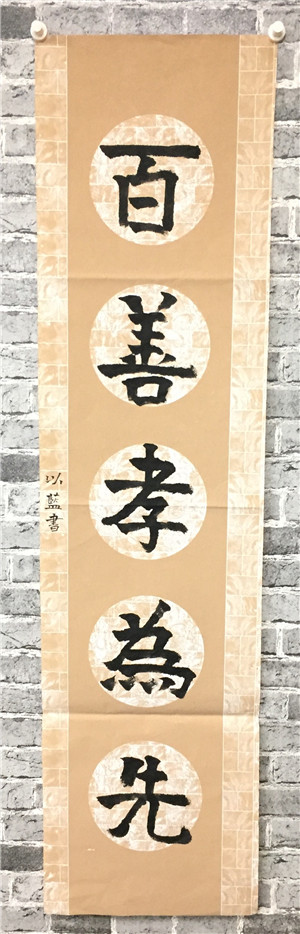 百善孝為先
以藍書